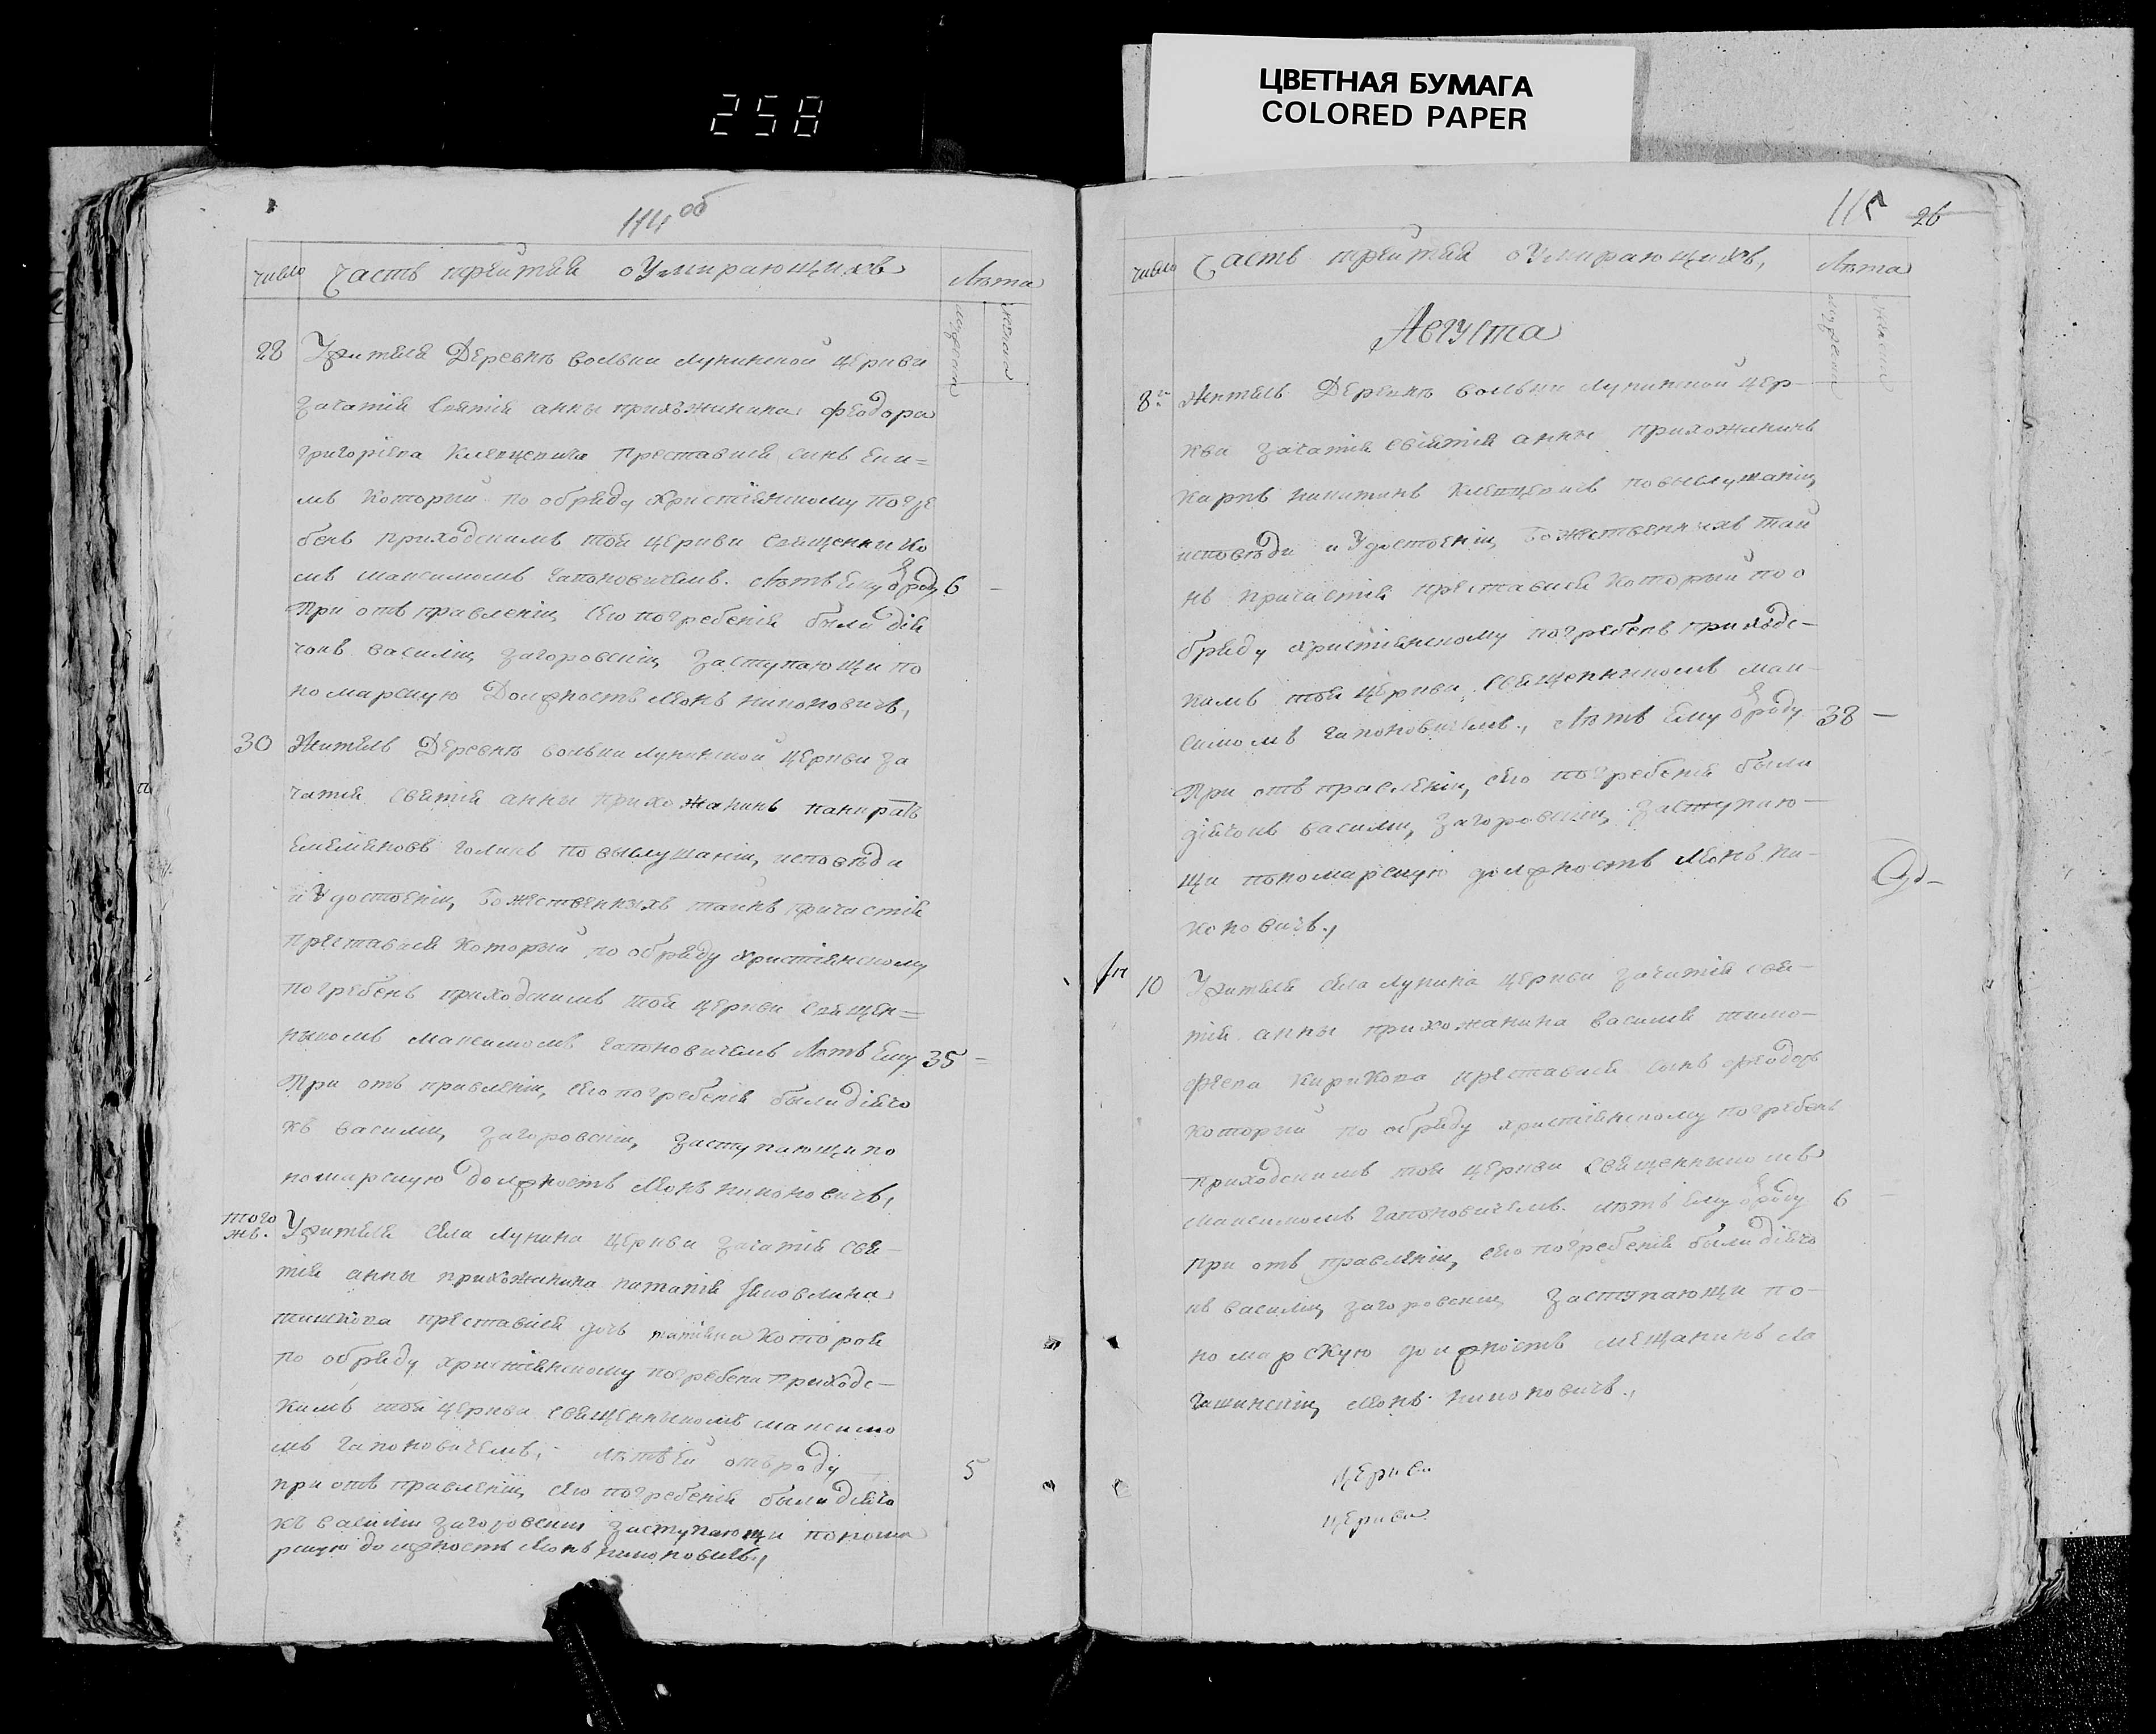 258
ЦВЕТНАЯ БУМАГА
COLORED PAPER
114 об
число Часть третия о Умирающихъ Лѣта
мужеска женска
28 У жителя Деревнѣ вольки лунинской церкви
зачатія святія анны прихожанина феодора
григоріева преставися синъ
мъ который по обряду христіянскому погре
бенъ приходскимъ тоя церкви священнико
мъ максимомъ гапоновичемъ. Лѣтъ Ему ѿ роду 6 –
При отъ правленіи его погребенія были дія
чокъ василіи загоровскіи заступающи по
номарскую Должность Леонъ никоновичъ,
30 Житель Деревнѣ вольки лунинской церкви за
чатія святія анны прихожанинъ панкратъ
Емеляновъ голикъ по выслушаніи исповѣди
и Удостоеніи Божественныхъ таинъ причастія
преставися который по обряду христіянскому
погребенъ приходскимъ тоя церкви священ=
ныкомъ максимомъ гапоновичемъ Лѣтъ Ему 35 –
При отъ правленіи его погребенія были діячо
къ василіи загоровскіи заступающи по
номарскую должность Леонъ никоновичъ,
того жъ. У жителя села лунина церкви зачатія свя–
тія анны прихожанина
преставися дочъ татіяна которая
по обряду христіянскому погребена приходс–
кимъ тоя церкви священныкомъ максимо
мъ гапоновичемъ, лѣтъ Ей отъ роду 5
при отъ правленіи его погребенія были діячо
къ василіи загоровскіи заступающи понома
рскую должность Леонъ никоновичъ,
115 26
число Часть третия о Умирающихъ, Лѣта
мужеска женска
Августа
8го Житель Деревнѣ вольки лунинской цер–
кви зачатія святія анны прихожанинъ
карпъ никитинъ по выслушаніи
исповѣди и Удостоеніи Божественныхъ таи
нъ причастія преставися который по о
бряду христіянскому погребенъ приходс–
кимъ тоя церкви священныкомъ мак–
симомъ гапоновичемъ, Лѣтъ Ему ѿ роду 38 –
При отъ правленіи его погребенія были
діячокъ василіи загоровскіи заступаю–
щи пономарскую должность Леонъ ни–
коновичъ.,
10 У жителя села лунина церкви зачатія свя–
тія анны прихожанина василія тимо–
феева кирикова преставися сынъ феодоръ
который по обряду христіянскому погребенъ
приходскимъ тоя церкви священныкомъ
максимомъ гапоновичемъ. лѣтъ Ему ѿ роду 6 –
при отъ правленіи его погребенія были діячо
къ василіи загоровскіи заступающи по–
номарскую должность мещанинъ ло
гишинскіи Леонъ никоновичъ.,
церкви
церкви